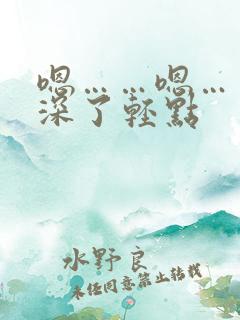 嗯……嗯…
深了轻點
水野良
未经同意禁止转载